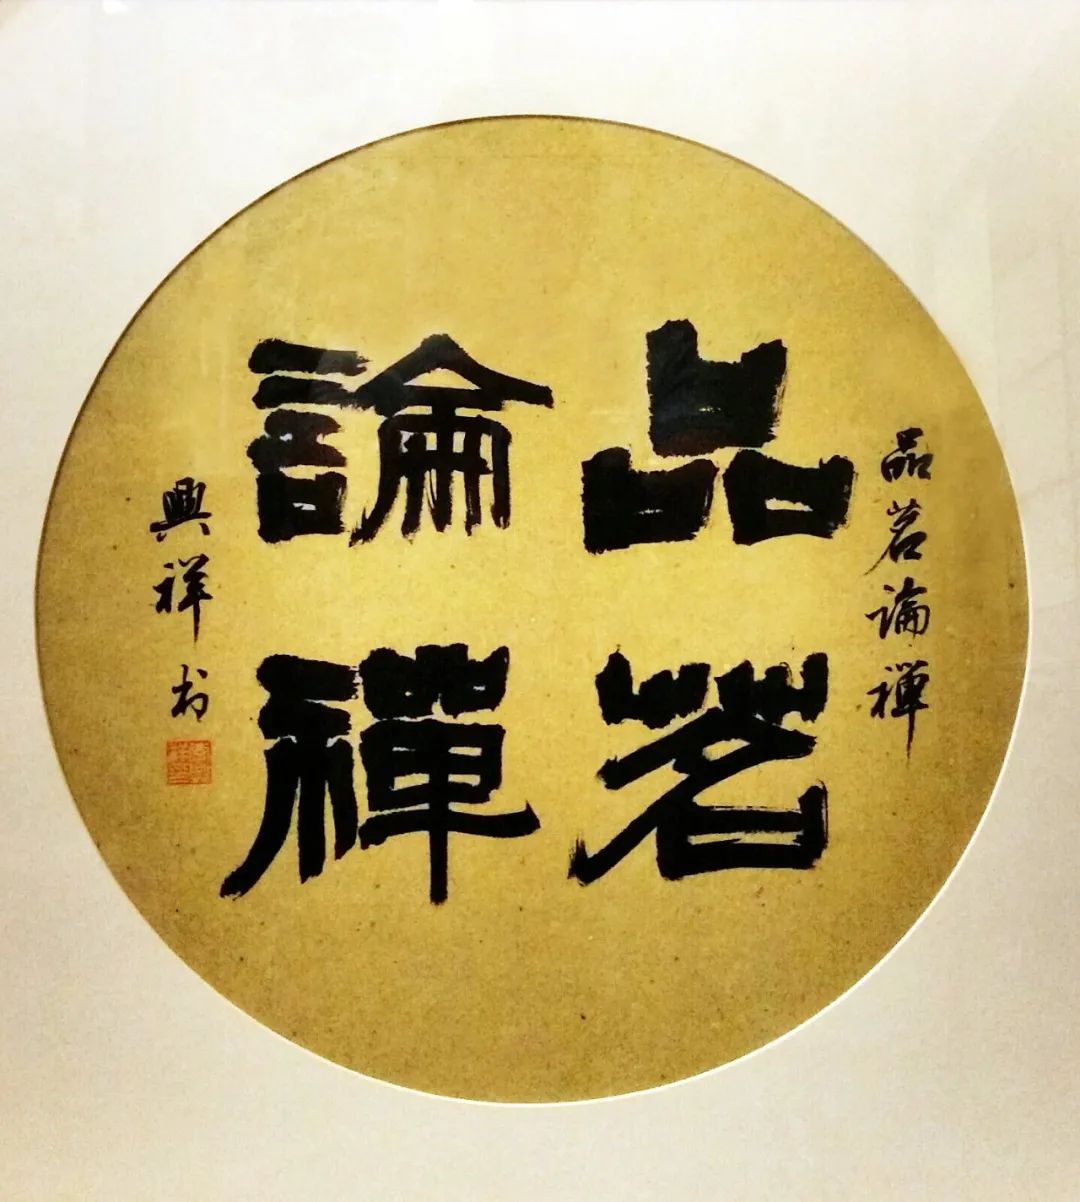 品茗
論禪
品茗論禪
興祥书